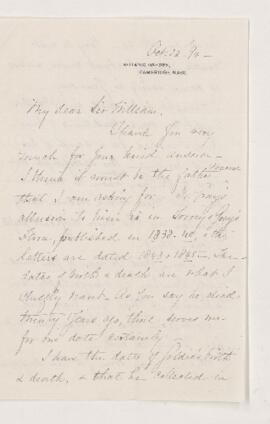 Oct. 22 '94 -
BOTANIC GARDEN,
CAMBRIDGE, MASS.
My dear Sir William.
Thank you very
much for your kind answer -
I think it must be the father
that I am asking for. Dr. Gray's
allusion to him is in Torrey & Gray's
Flora, published in 1838-40, & the
letters are dated 1843 & 1845 - The
dates of birth & death are what I
chiefly want. As you say he died
twenty years ago, that serves me
for one date certainly -
I have the dates of Goldie's birth
& death, & that he collected in